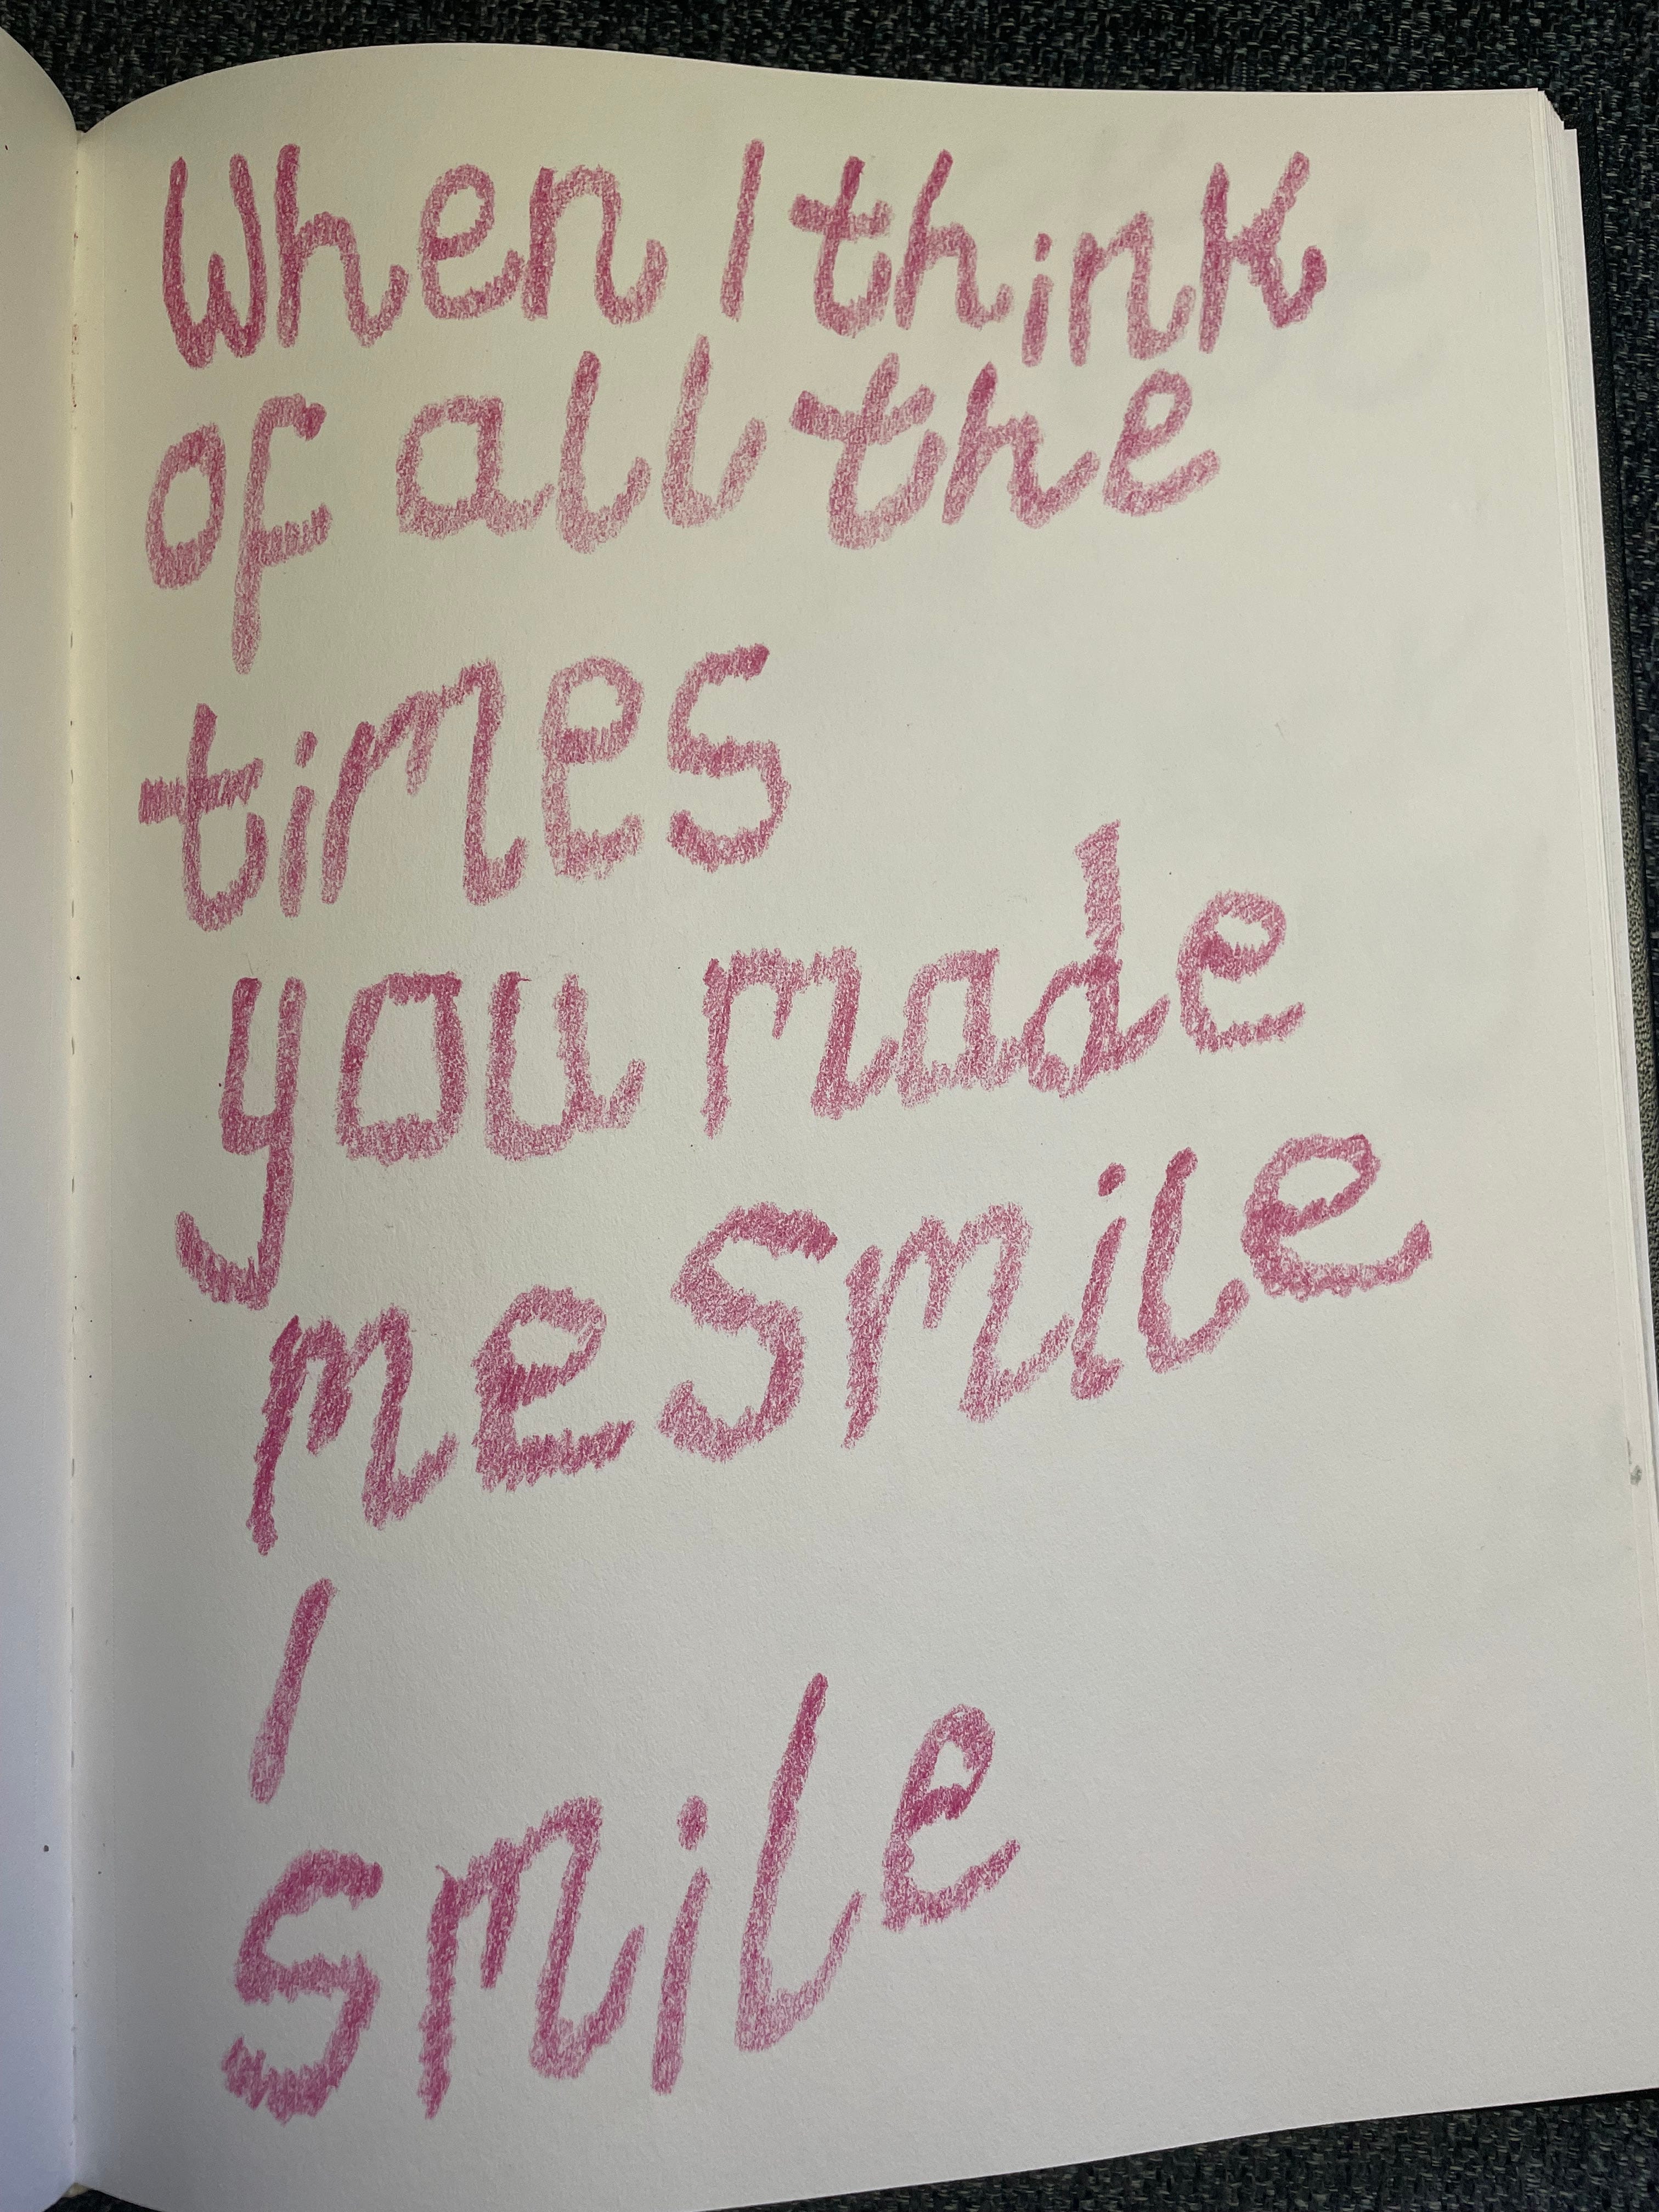 When I think
of all the
times
you made
me smile
I
smile